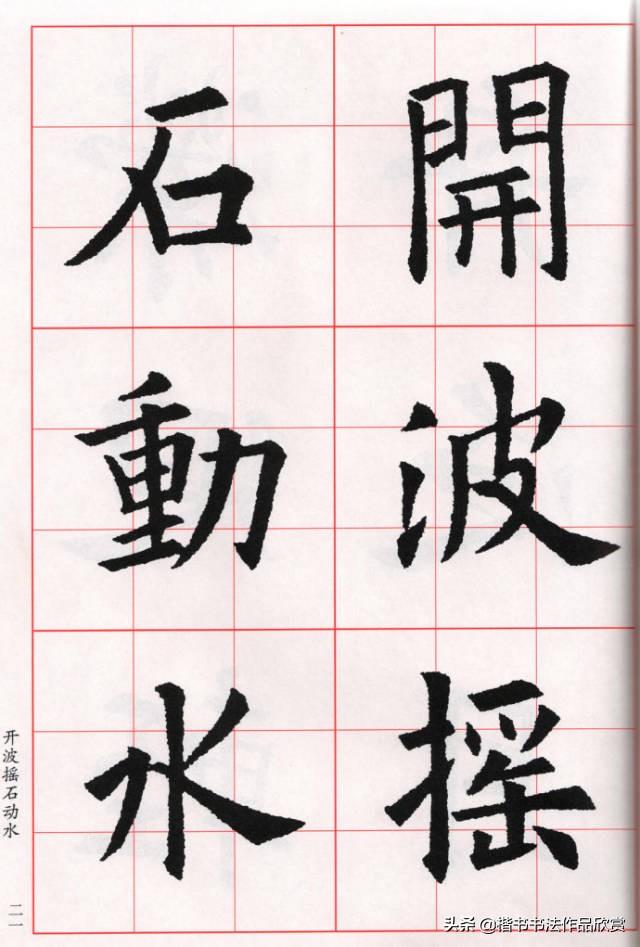 開波摇
石動水
开波摇石动水
二一
头条 @楷书书法作品欣赏